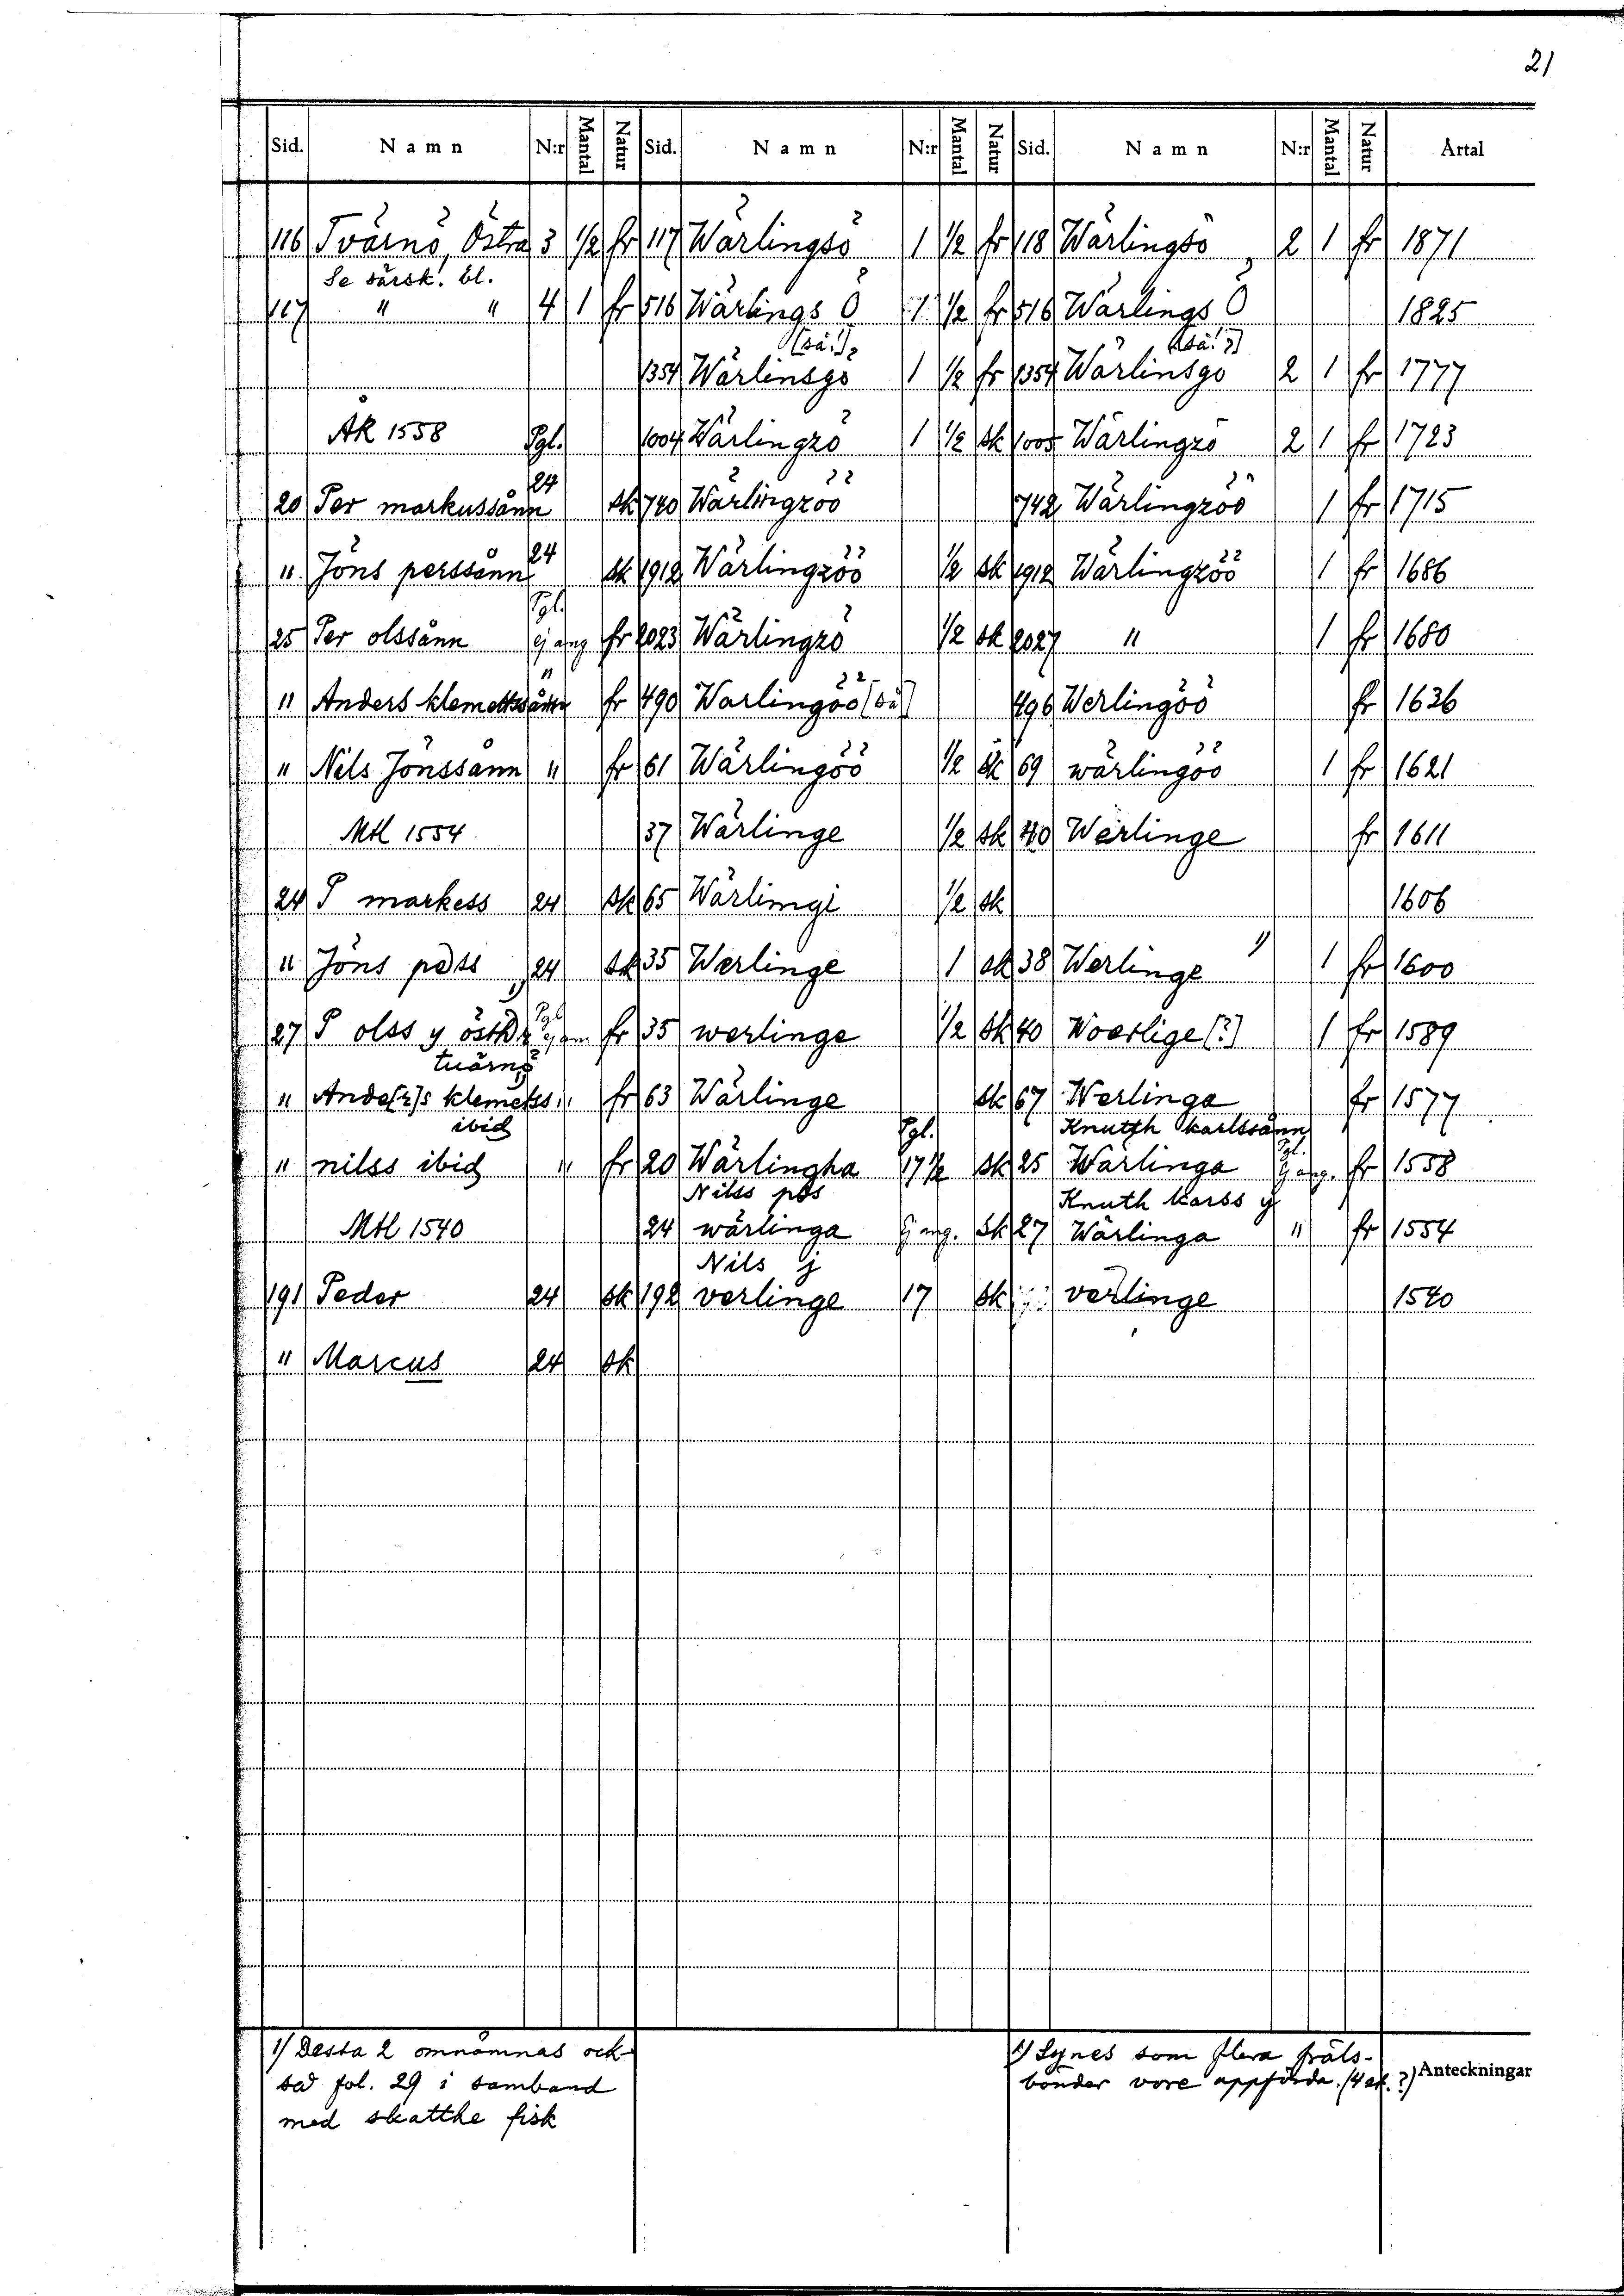 21
Sid. Namn N:r Mantal Natur Sid. Namn N:r Mantal Natur Sid. Namn N:r Mantal Natur Årtal
116 Tvärnö, Östra 3 1/2 fr 117 Wärlingsö 1 1/2 fr 118 Wärlingsö 2 1 fr 1871
Se särsk. bl.
117 " " 4 1 fr 516 Wärlings Ö 1 1/2 fr 516 Wärlings Ö 1825
(så!) (så!)
1354 Wärlinsgö 1 1/2 fr 1354 Wärlinsgö 2 1 fr 1777
ÄR 1558 Pgl. 1004 Wärlingzö 1 1/2 sk 1005 Wärlingzö 2 1 fr 1723
24
20 Per markussånn sk 740 Wärlingzöö 742 Wärlingzöö 1 fr 1715
24
" Jöns perssånn sk 1912 Wärlingzöö 1/2 sk 1912 Wärlingzöö 1 fr 1686
Pgl.
25 Per olssånn Ej ang fr 2023 Wärlingzö 1/2 sk 2027 " 1 fr 1680
"
" Anders klemettssånn fr 490 Warlingöö (så) 496 Werlingöö fr 1636
" Nils Jönssånn " fr 61 Wärlingöö 1/2 sk 69 wärlingöö 1 fr 1621
Mtl 1554 37 Wärlinge 1/2 sk 40 Werlinge fr 1611
24 P markess 24 sk 65 Wärlimgi 1/2 sk 1606
" Jöns pdss 24 sk 35 Werlinge 1 sk 38 Werlinge 1) 1 fr 1600
1) Pgl
27 P olss y östhr fr 35 werlinge 1/2 sk 40 Woerlige (?) 1 fr 1589
tuärnö
" Ande[r]s klemetss " fr 63 Wärlinge sk 67 Werlinga fr 1577
ibid Pgl. Knutzh karlssånn
" nilss ibid " fr 20 Wärlingha 17 1/2 sk 25 Wärlinga Pgl. Ej ang. fr 1558
Nilss pds Knuth karss y
Mtl 1540 24 wärlinga Ej ang. sk 27 Wärlinga " fr 1554
Nils j
191 Peder 24 sk 192 verlinge 17 sk verlinge 1540
" Marcus 24 sk
1) Dessa 2 omnämnas ock-
så fol. 29 i samband
med skatthe fisk
1) Synes som flera fräls-
bönder vore uppförda. (4 st. ?)
Anteckningar